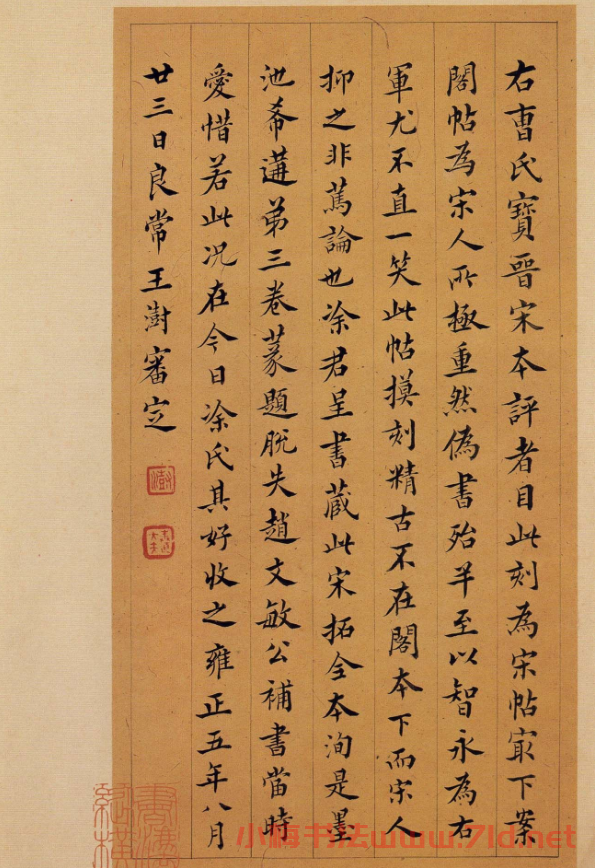 右曹氏寶晉宋本評者目此刻為宋帖㝡下案
閣帖為宋人所極重然偽書殆半至以智永為右
軍尤不直一笑此帖摸刻精古不在閣本下而宋人
抑之非蔿論也涂君呈書蔵此宋拓全本洵是墨
池希遘弟三卷篆題脱失趙文敏公補書當時
愛惜若此况在今日涂氏其好收之雍正五年八月
廿三日良常王澍審定
澍
小梅书法www.7ld.net